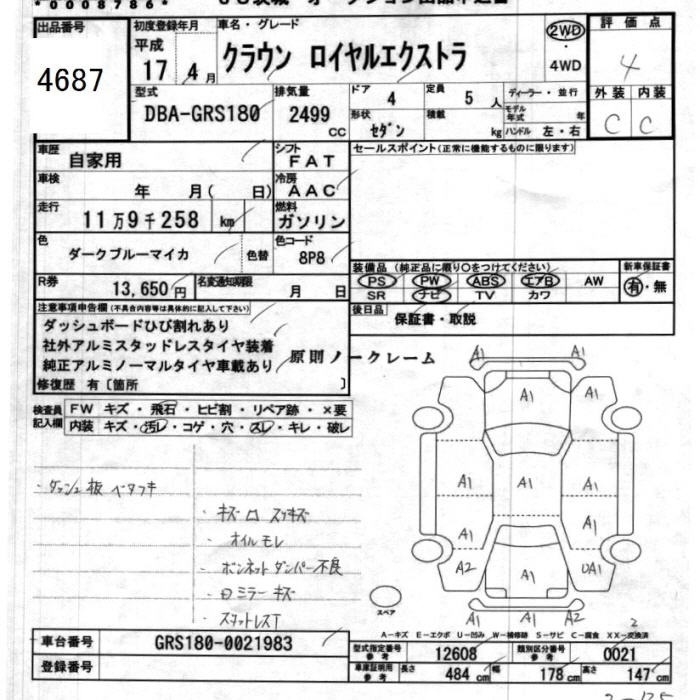 *0008786*
出品番号
4687
初度登録年月
平成
17年 4月
車名・グレード
クラウン ロイヤルエクストラ
2WD
4WD
評価点
4
外装 内装
C C
型式
DBA-GRS180
排気量
2499
CC
ドア
4
定員
5人
形状
セダン
積載
kg
ディーラー・並行
モデル年式 年
ハンドル 左・右
車歴
自家用
シフト
FAT
セールスポイント(正常に機能するものに限ります)
車検
年 月( 日)
冷房
AAC
走行
11万9千258 km
燃料
ガソリン
色
ダークブルーマイカ
色替
色コード
8P8
装備品(純正品に限り○をつけてください)
PS PW ABS エアB AW
SR ナビ TV カワ
新車保証書
有・無
R券
13,650円
名変通知期限
月 日
後日品
保証書・取説
注意事項申告欄(不具合内容等は具体的に記入して下さい)
ダッシュボードひび割れあり
社外アルミスタッドレスタイヤ装着
純正アルミノーマルタイヤ車載あり
原則ノークレーム
修復歴 有〔箇所 〕
検査員記入欄
FW キズ・飛石・ヒビ割・リペア跡・×要
内装 キズ・汚レ・コゲ・穴・スレ・キレ・破レ
・ダッシュ板 ベタつき
・キズ凹 スリキズ
・オイルモレ
・ボンネットダンパー不良
・ミラーキズ
・スタットレスT
A1 A1
A1 A1 A1
A1 A1 A1
A1 A1
A2 A1 UA1
A1 A1 A2
スペア
2
A-キズ E-エクボ U-凹み W-補修跡 S-サビ C-腐食 XX-交換済
車台番号
GRS180-0021983
登録番号
型式指定番号
参考
12608
類別区分番号
参考
0021
車庫証明用
参考
長さ
484 cm
幅
178 cm
高さ
147 cm